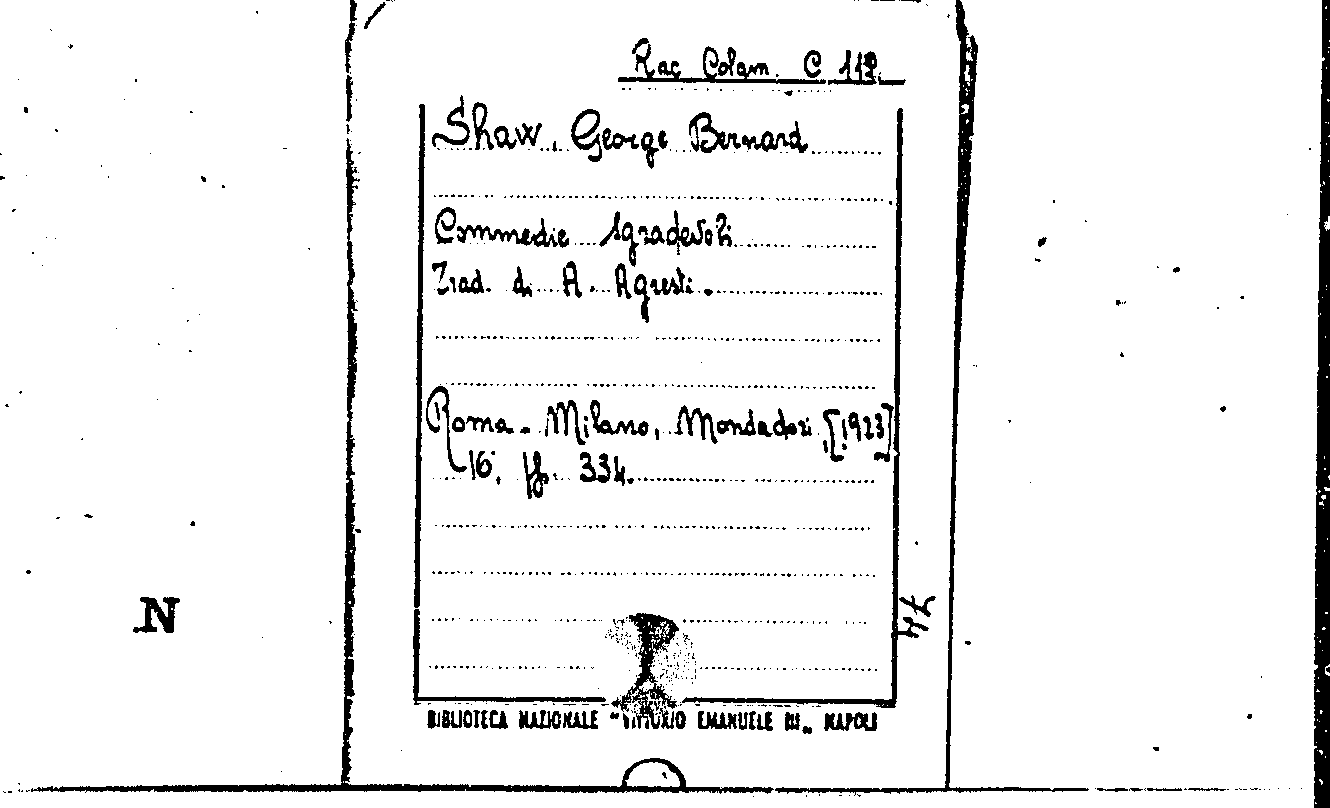 Rac. Colam. C 112.
Shaw, George Bernard
Commedie sgradevoli
Trad. di A. Agresti.
Roma - Milano, Mondadori, [1923]
16°, pp. 334.
74
N
BIBLIOTECA NAZIONALE "VITTORIO EMANUELE III„ NAPOLI